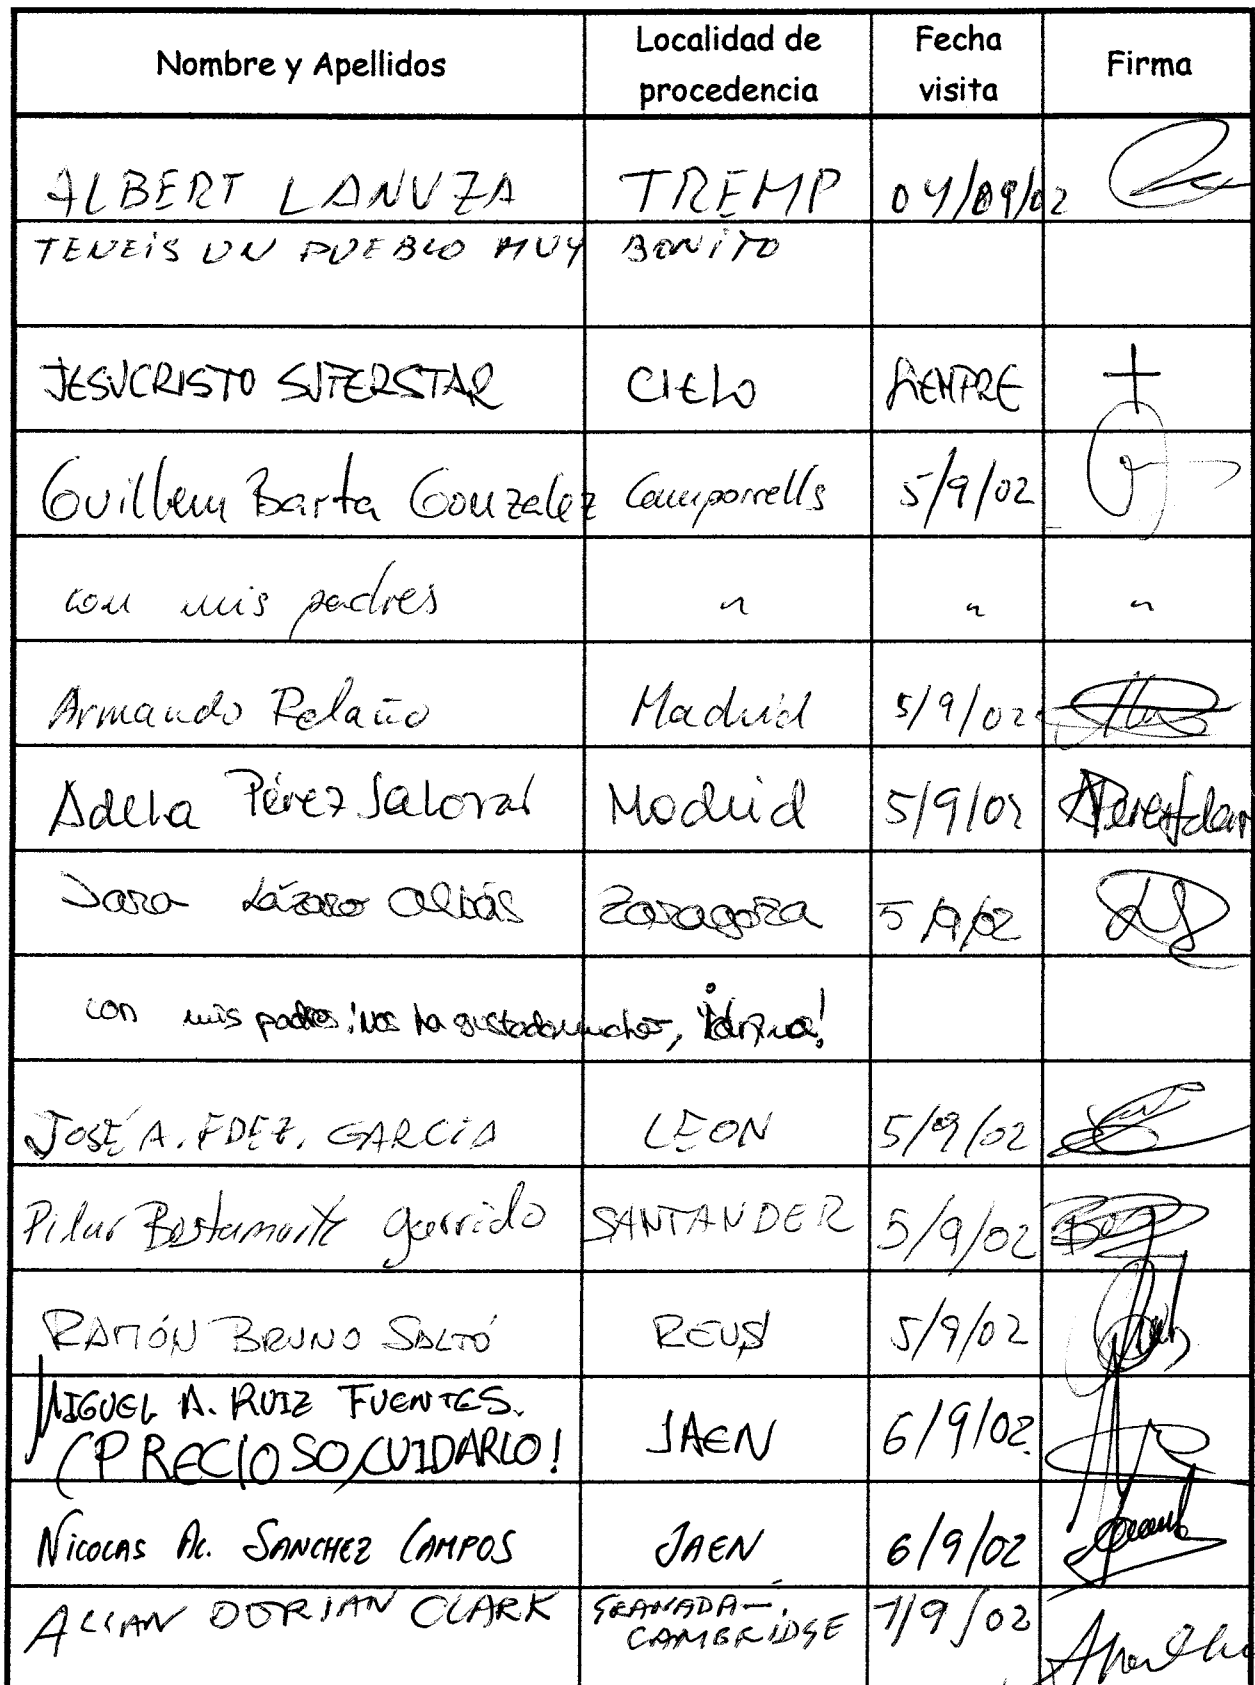 Nombre y Apellidos Localidad de procedencia Fecha visita Firma
ALBERT LANUZA TREMP 04/09/02
TENEIS UN PUEBLO MUY BONITO
JESUCRISTO SUPERSTAR CIELO SIEMPRE
Guillem Barta Gonzalez Camporrells 5/9/02
con mis padres " " "
Armando Relaño Madrid 5/9/02
Adela Pérez Madrid 5/9/02
Lázaro Zaragoza 5/9/02
con mis padres ¡Nos ha gustado mucho,
JOSÉ A. FDEZ. GARCIA LEON 5/9/02
Pilar Garrido SANTANDER 5/9/02
RAMÓN BRUNO SALTÓ REUS 5/9/02
MIGUEL A. RUIZ FUENTES. JAEN 6/9/02
¡PRECIOSO, CUIDARLO!
NICOLAS SANCHEZ CAMPOS JAEN 6/9/02
ALLAN DORIAN CLARK GRANADA-CAMBRIDGE 7/9/02